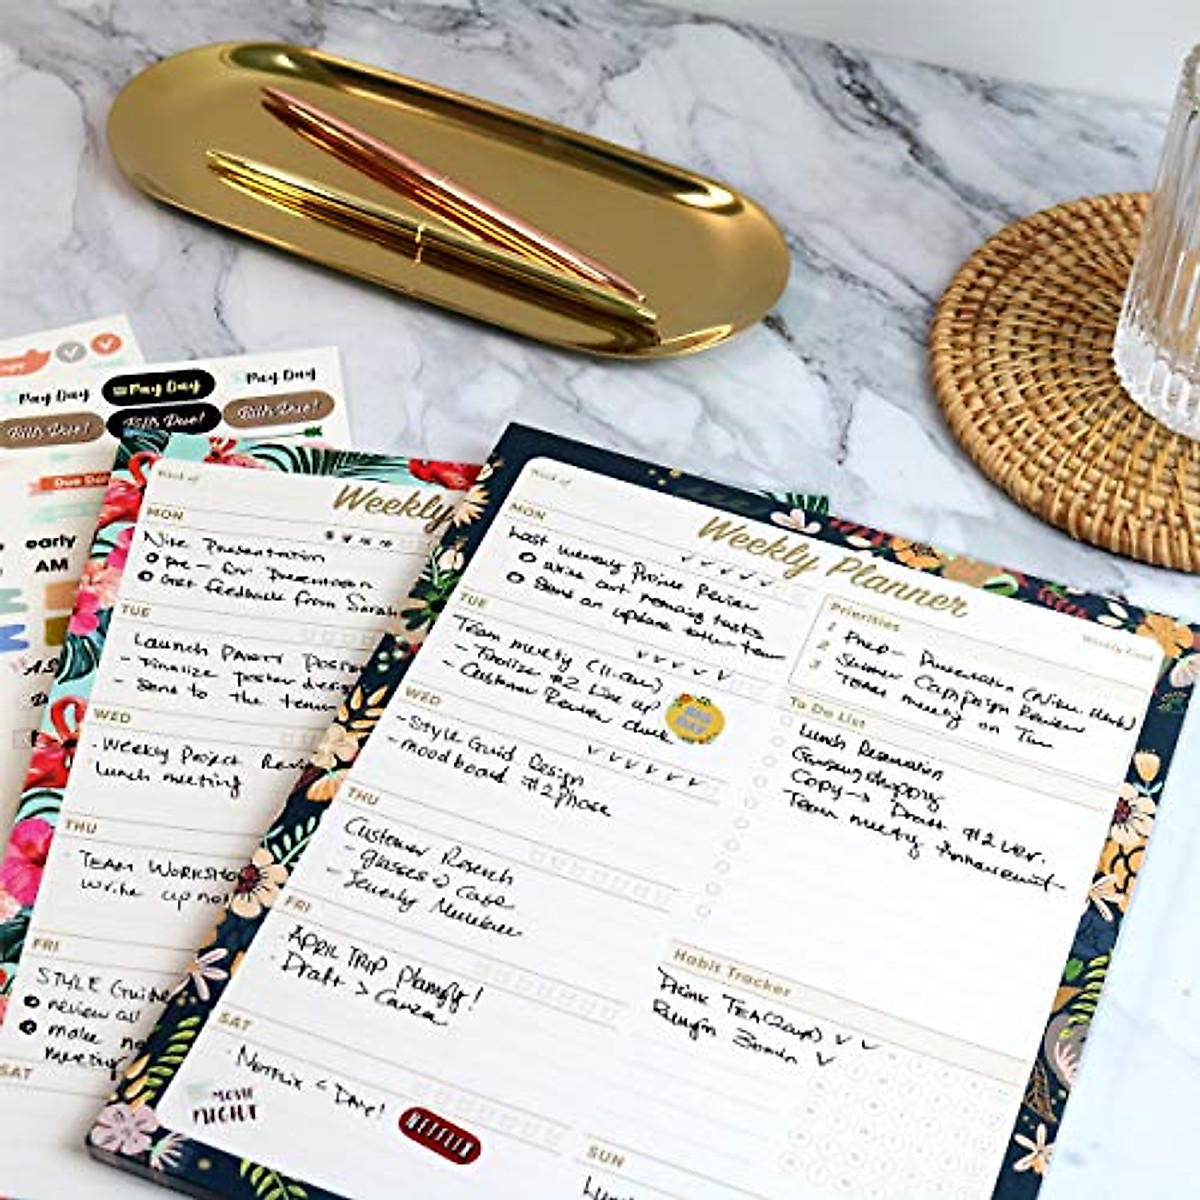 Pay Day
Pay Day
Pay Day
Bills Due!
Bills Due!
Bills Due!
Due Dat
early
AM
Week of
Weekly
MON
Nite Presentation
Pre - for Presentation
Get feedback from Sarah
TUE
Launch PARTY Poster
- Finalize poster design
- send to the team
WED
Weekly Project Revi
lunch meeting
THU
TEAM WORKSHOP
write up not
FRI
STYLE Guide
review all
make no
meeting
SAT
Week of
Weekly Planner
MON
Last Project Review
write out tasks
send an update
TUE
Team meeting (11am)
- Finalize #2 line up
- Customer Review
BIG
DAY
WED
- Style Guid Design
- moodboard #2 phase
THU
Customer Reserch
- glasses 2 Case
- Jewelry
FRI
APRIL TRIP Planning!
Draft > Canva
SAT
Netflix < Date!
MOVIE
NIGHT
NETFLIX
Priorities
1 Prep - Presentation
2 Summer Campaign Review
3 Team meeting on Tue
Weekly Goal
To Do List
Lunch Reservation
Grocery shopping
Copy -> Draft #2 ver.
Team meeting Announcement
Habit Tracker
Drink TEA (2cup)
Run 30min
SUN